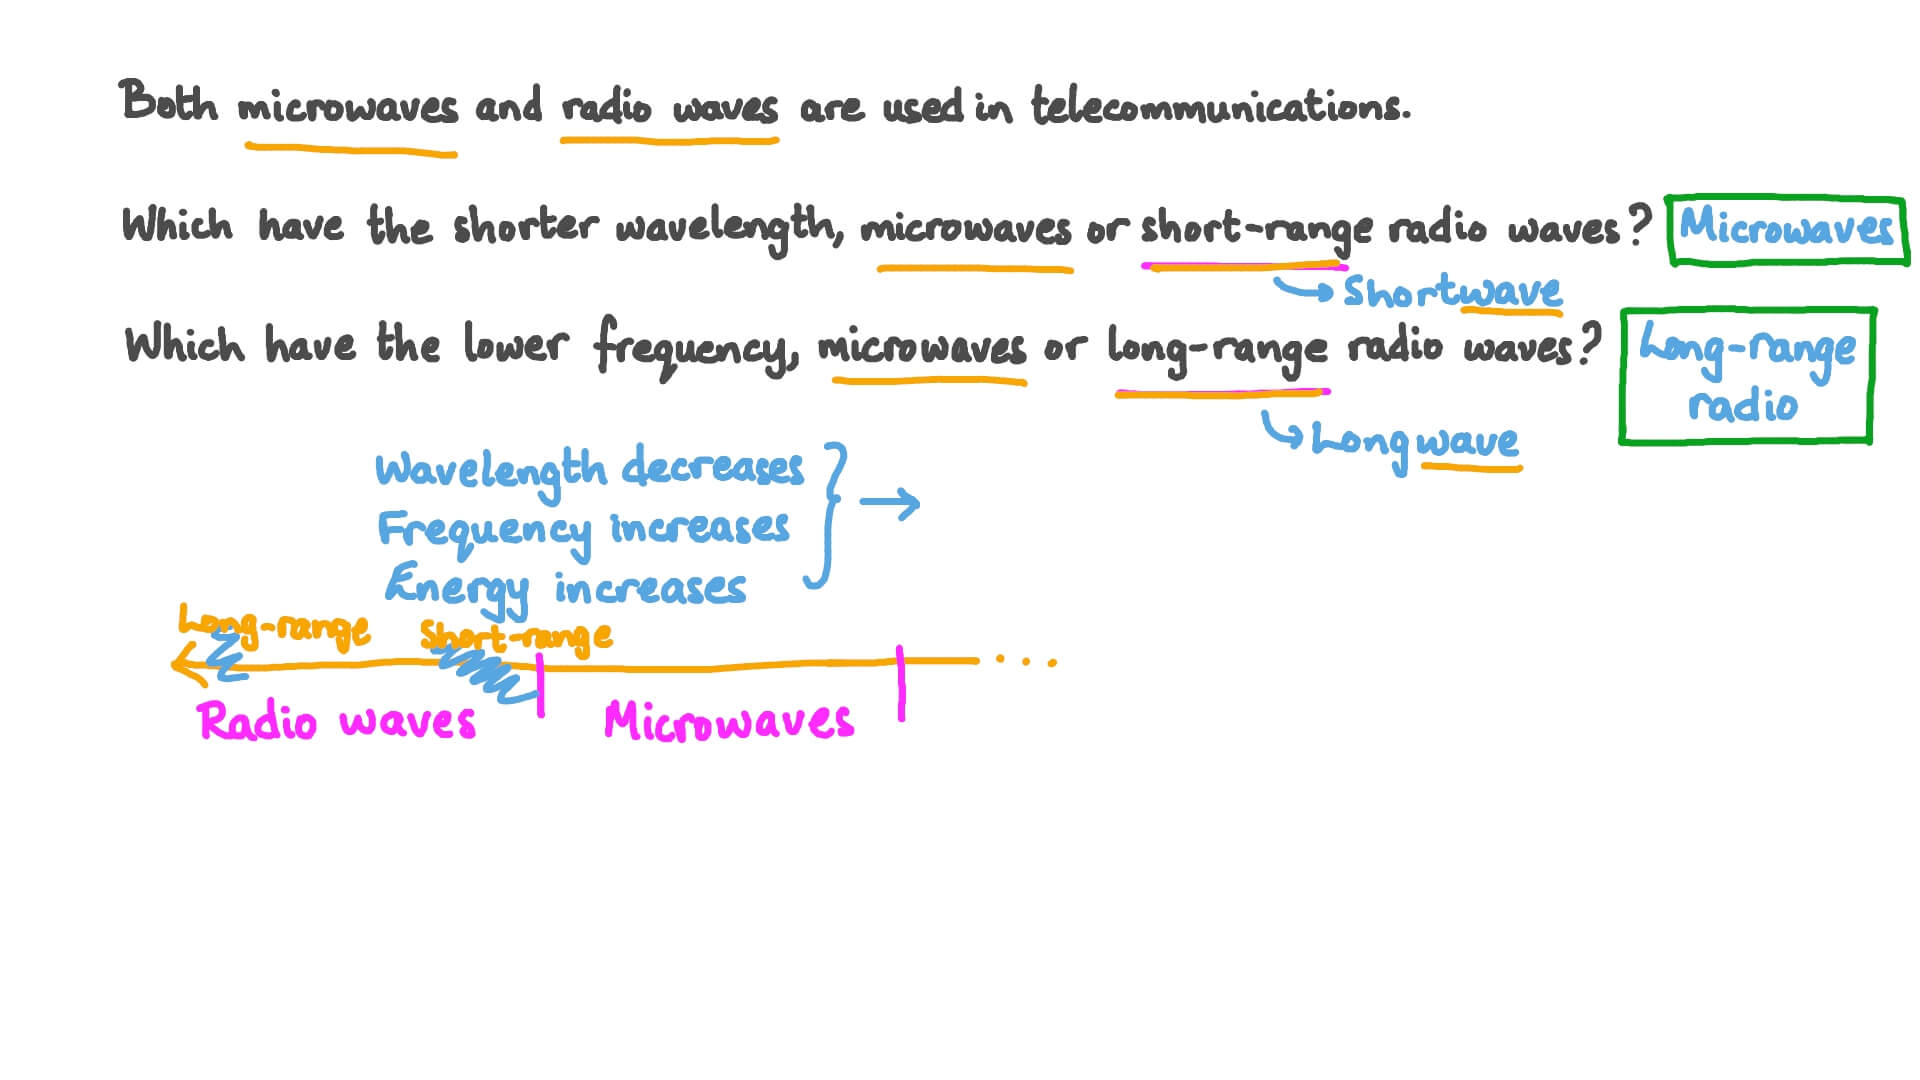 Both microwaves and radio waves are used in telecommunications.
Which have the shorter wavelength, microwaves or short-range radio waves? Microwaves
Shortwave
Which have the lower frequency, microwaves or long-range radio waves? Long-range
radio
Longwave
Wavelength decreases
Frequency increases
Energy increases
Long-range Short-range
Radio waves Microwaves